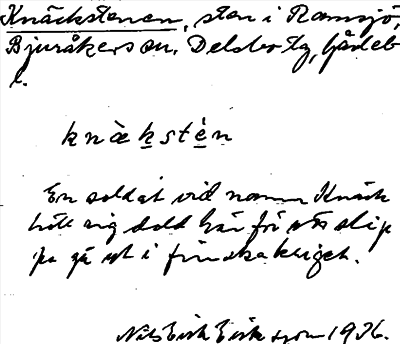 Knäckstenen, sten i Ramsjö,
Bjuråkers sn. Delsbo tg, Gävleb
l.
knäkstèn
En soldat vid namn Knäck
höll sig dold här för att slip
pa gå ut i finska kriget.
Nils Erik Eriksson 1926.